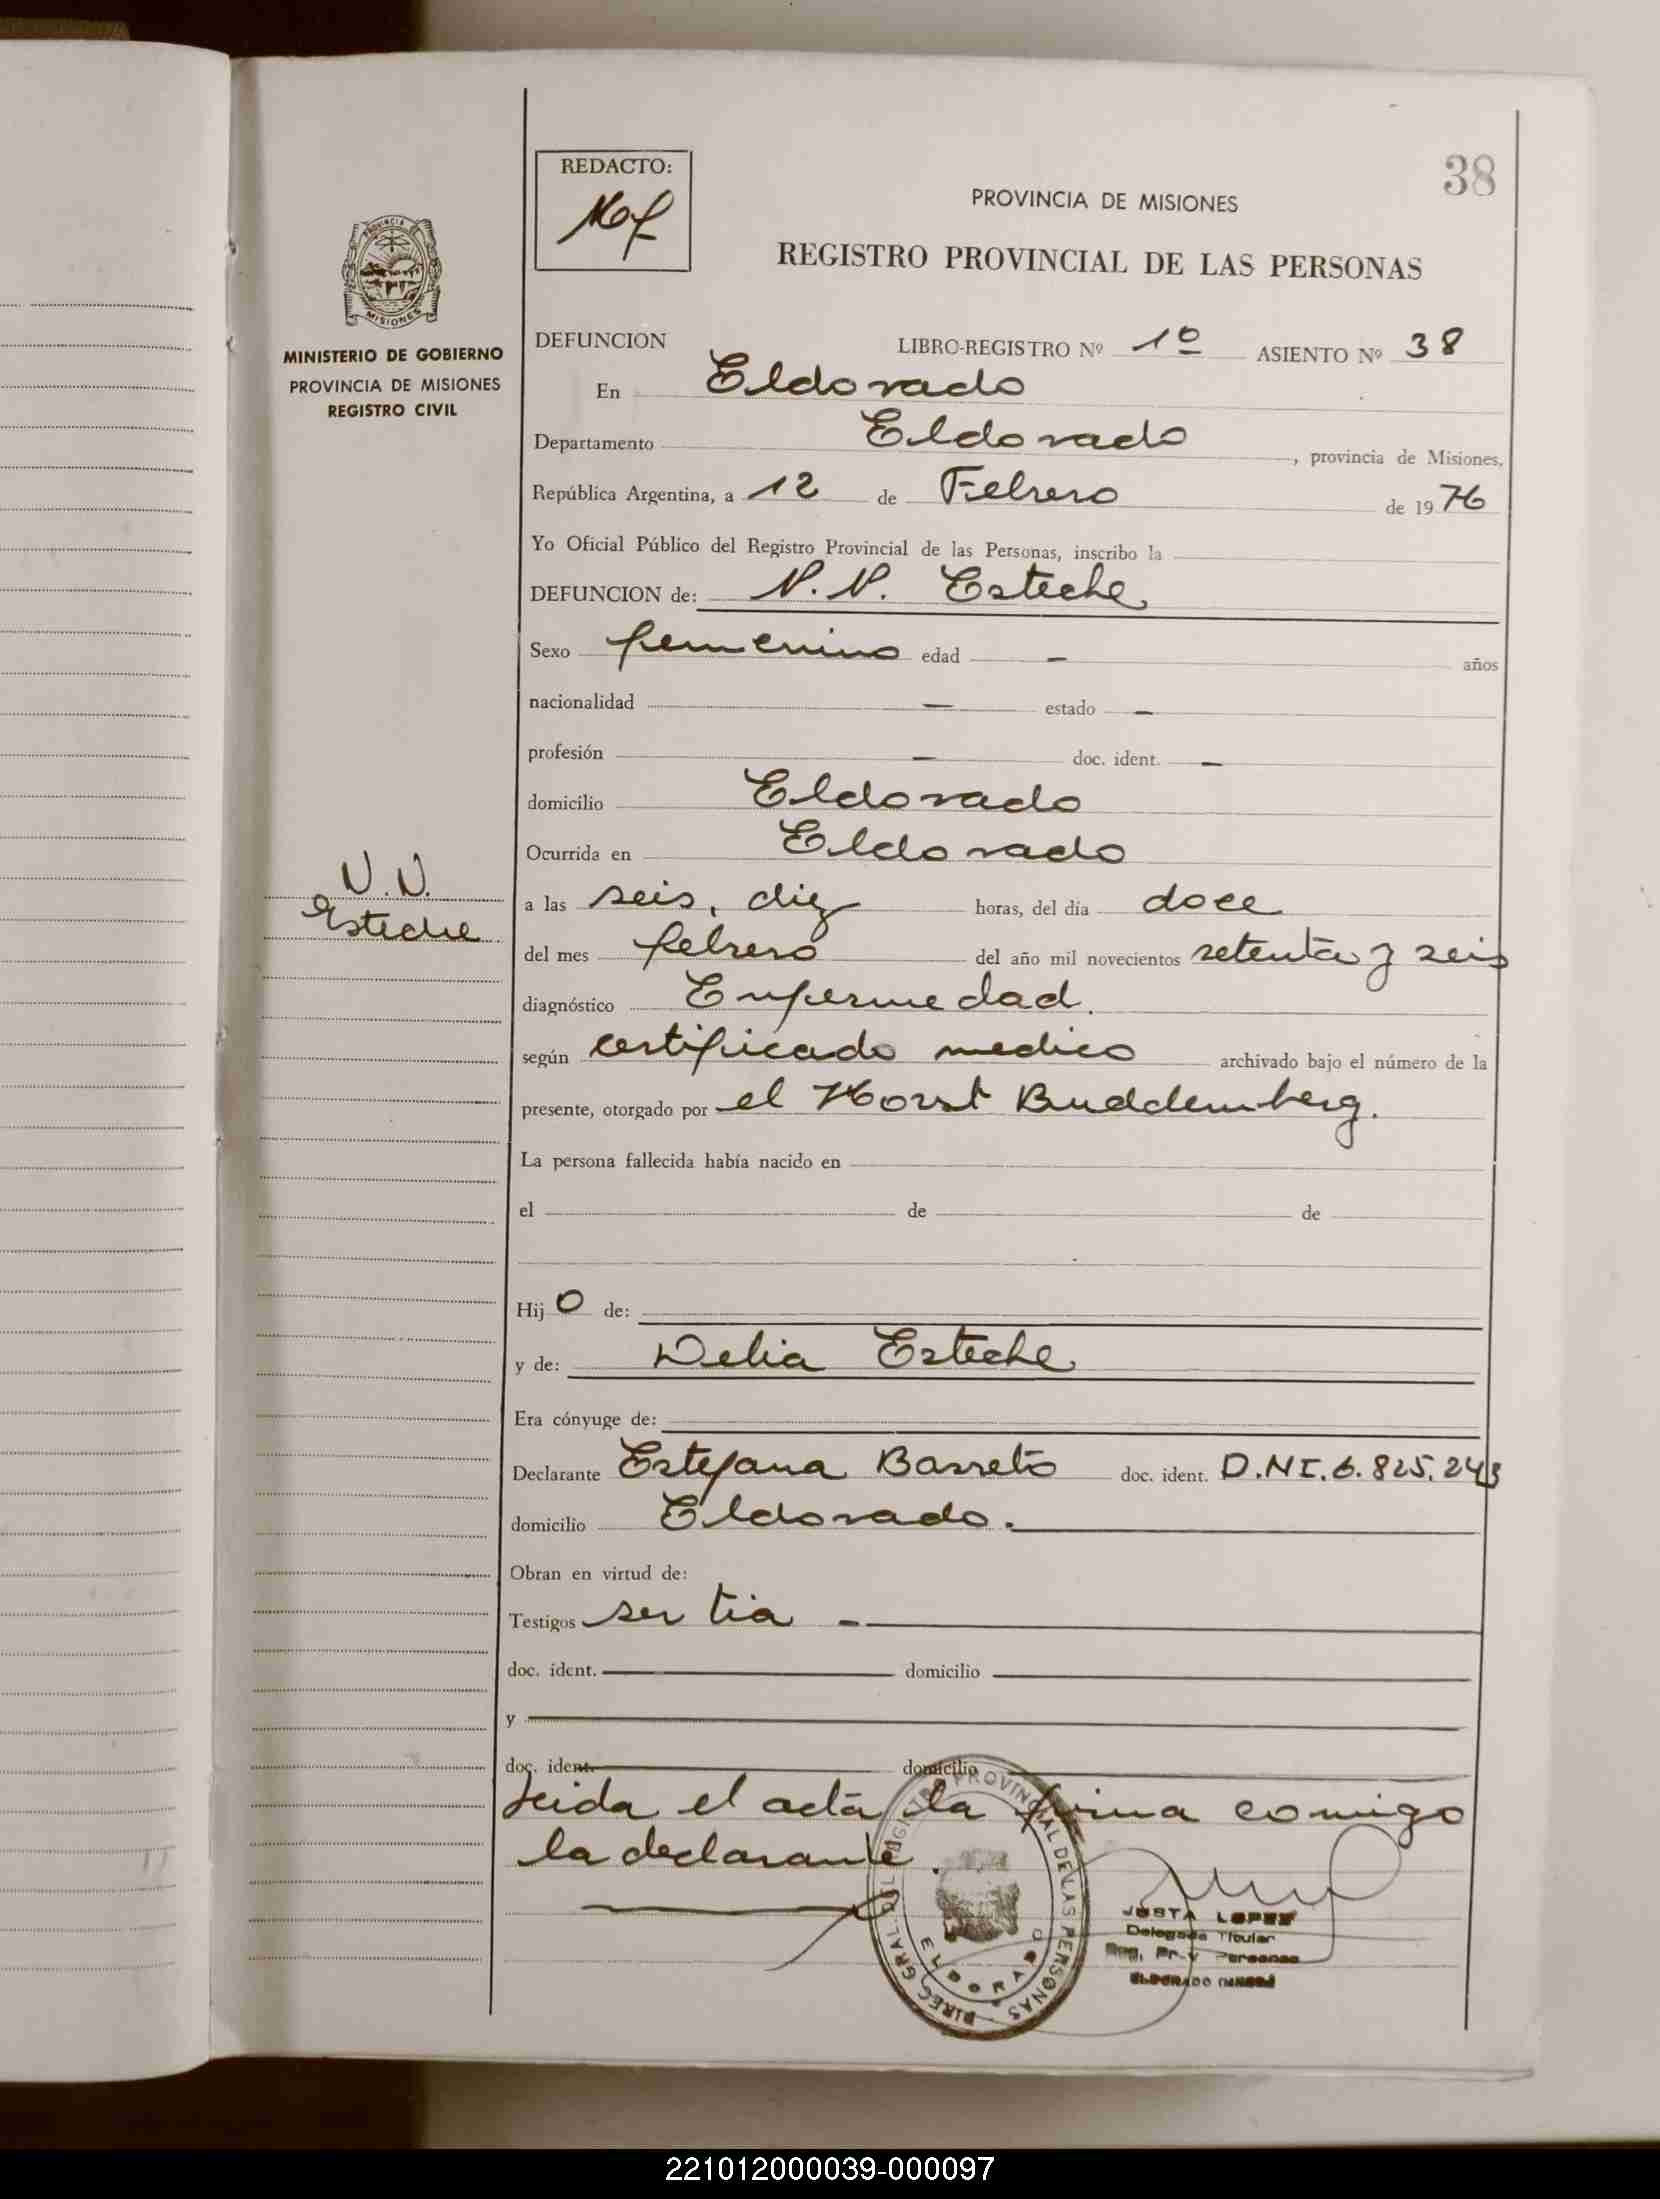 38
REDACTO:
PROVINCIA DE MISIONES
REGISTRO PROVINCIAL DE LAS PERSONAS
PROVINCIA
MISIONES
MINISTERIO DE GOBIERNO
PROVINCIA DE MISIONES
REGISTRO CIVIL
DEFUNCION LIBRO-REGISTRO Nº 1º ASIENTO Nº 38
En Eldorado
Departamento Eldorado, provincia de Misiones,
República Argentina, a 12 de Febrero de 1976
Yo Oficial Público del Registro Provincial de las Personas, inscribo la
DEFUNCION de: N.N. Esteche
Sexo femenino edad - años
nacionalidad - estado -
profesión - doc. ident. -
domicilio Eldorado
Ocurrida en Eldorado
N.N.
Esteche
a las seis, diez horas, del día doce
del mes febrero del año mil novecientos setenta y seis
diagnóstico Enfermedad.
según certificado medico archivado bajo el número de la
presente, otorgado por el Horst Buddemberg.
La persona fallecida había nacido en
el de de
Hijo de:
y de: Delia Esteche
Era cónyuge de:
Declarante Estefana Barreto doc. ident. D.N.I. 6.825.243
domicilio Eldorado.
Obran en virtud de:
Testigos ser tia -
doc. ident. domicilio
y
doc. ident. domicilio
Leida el acta la firma comigo
la declarante.
DIREC. GRAL. DEL REGISTRO PROVINCIAL DE LAS PERSONAS
ELDORADO
JUSTA LOPEZ
Delegada Titular
Reg. Pr. v Personas
ELDORADO
221012000039-000097